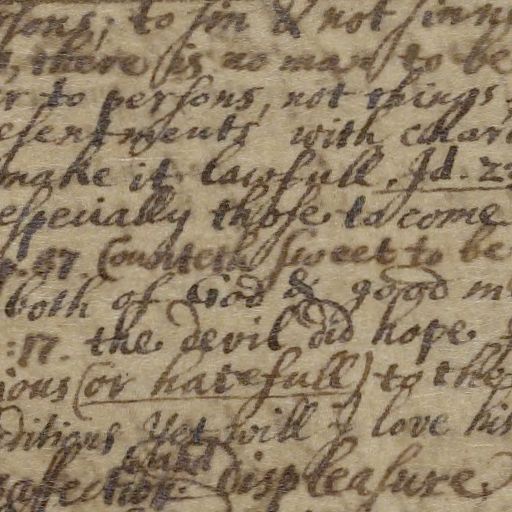 sons, to sin & not sinn
there is no man to be
r to persons, not things
esentments with
make it lawfull. Id. 23
especially those to come
17. Counteth sweet to be
both of God & good m
:17. the devil did hope
ious (or hatefull) to the
ditions Yet will I love his
affection displeasure